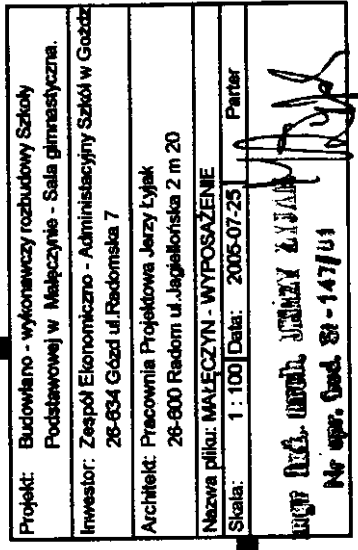 Projekt: Budowlano - wykonawczy rozbudowy Szkoły
Podstawowej w Małęczynie - Sala gimnastyczna.
Inwestor: Zespół Ekonomiczno - Administacyjny Szkół w Goźdz
26-634 Gózd ul.Radomska 7
Architekt: Pracownia Projektowa Jerzy Łyjak
26-600 Radom ul.Jagiellońska 2 m 20
Nazwa pliku: MAŁĘCZYN - WYPOSAŻENIE
Skala: 1 : 100 Data: 2005-07-25 Parter
mgr inż. arch. JERZY ŁYJAK
Nr upr. bud. St-147/81